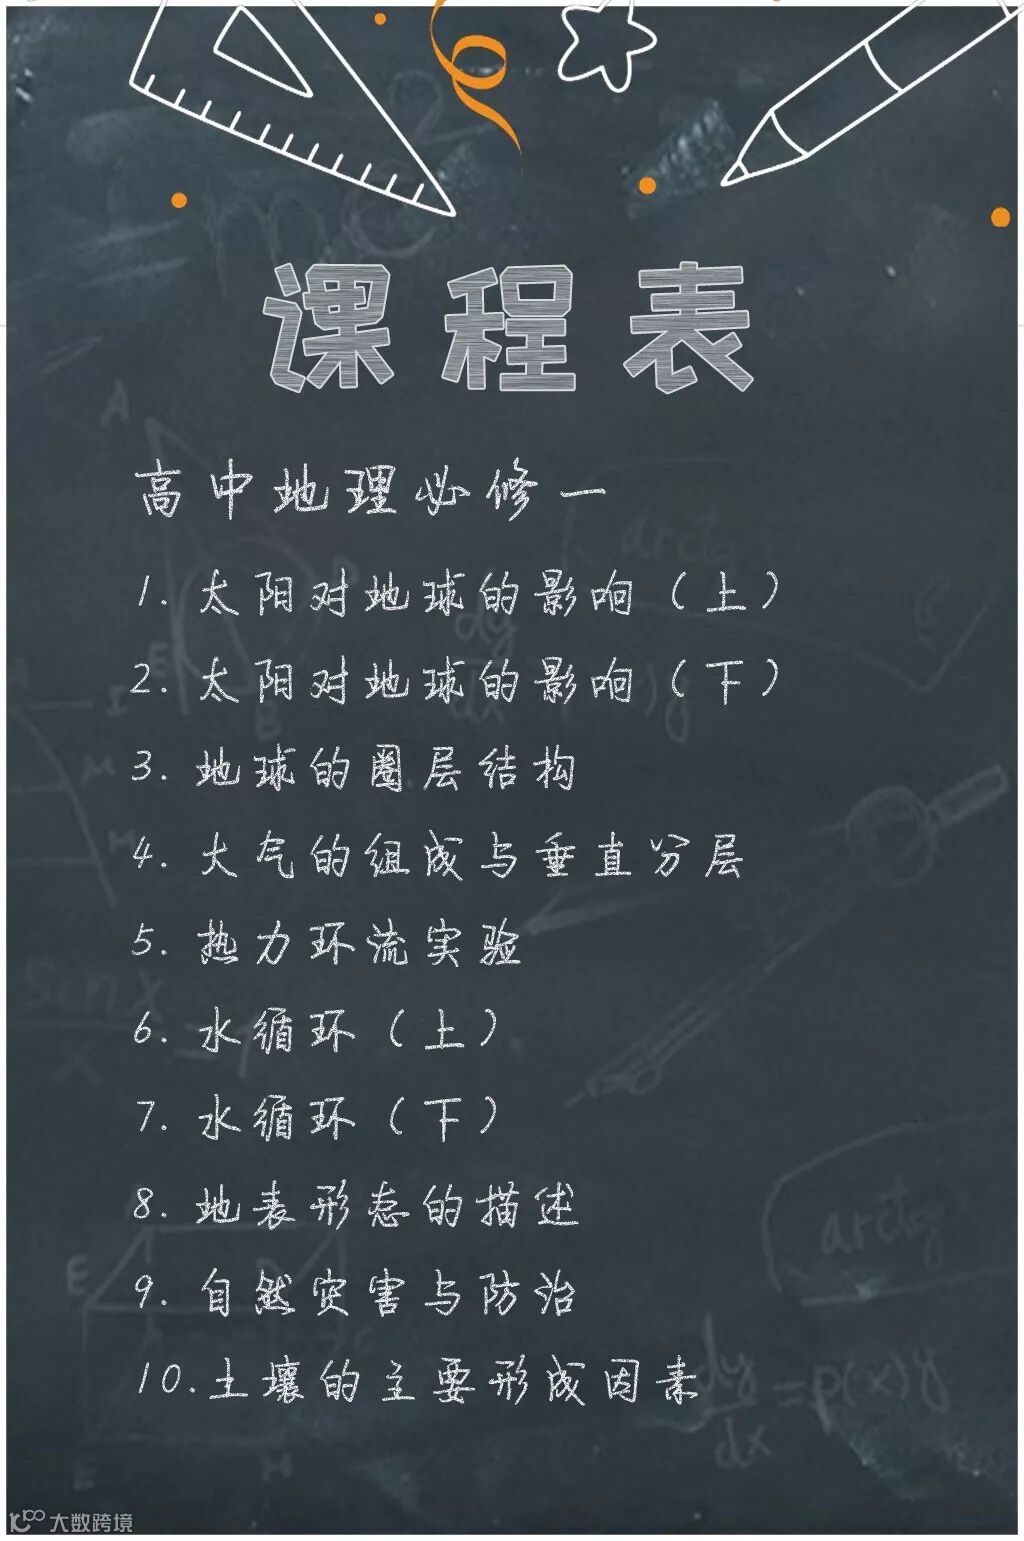 课程表
高中地理必修一
1. 太阳对地球的影响（上）
2. 太阳对地球的影响（下）
3. 地球的圈层结构
4. 大气的组成与垂直分层
5. 热力环流实验
6. 水循环（上）
7. 水循环（下）
8. 地表形态的描述
9. 自然灾害与防治
10.土壤的主要形成因素
大数跨境